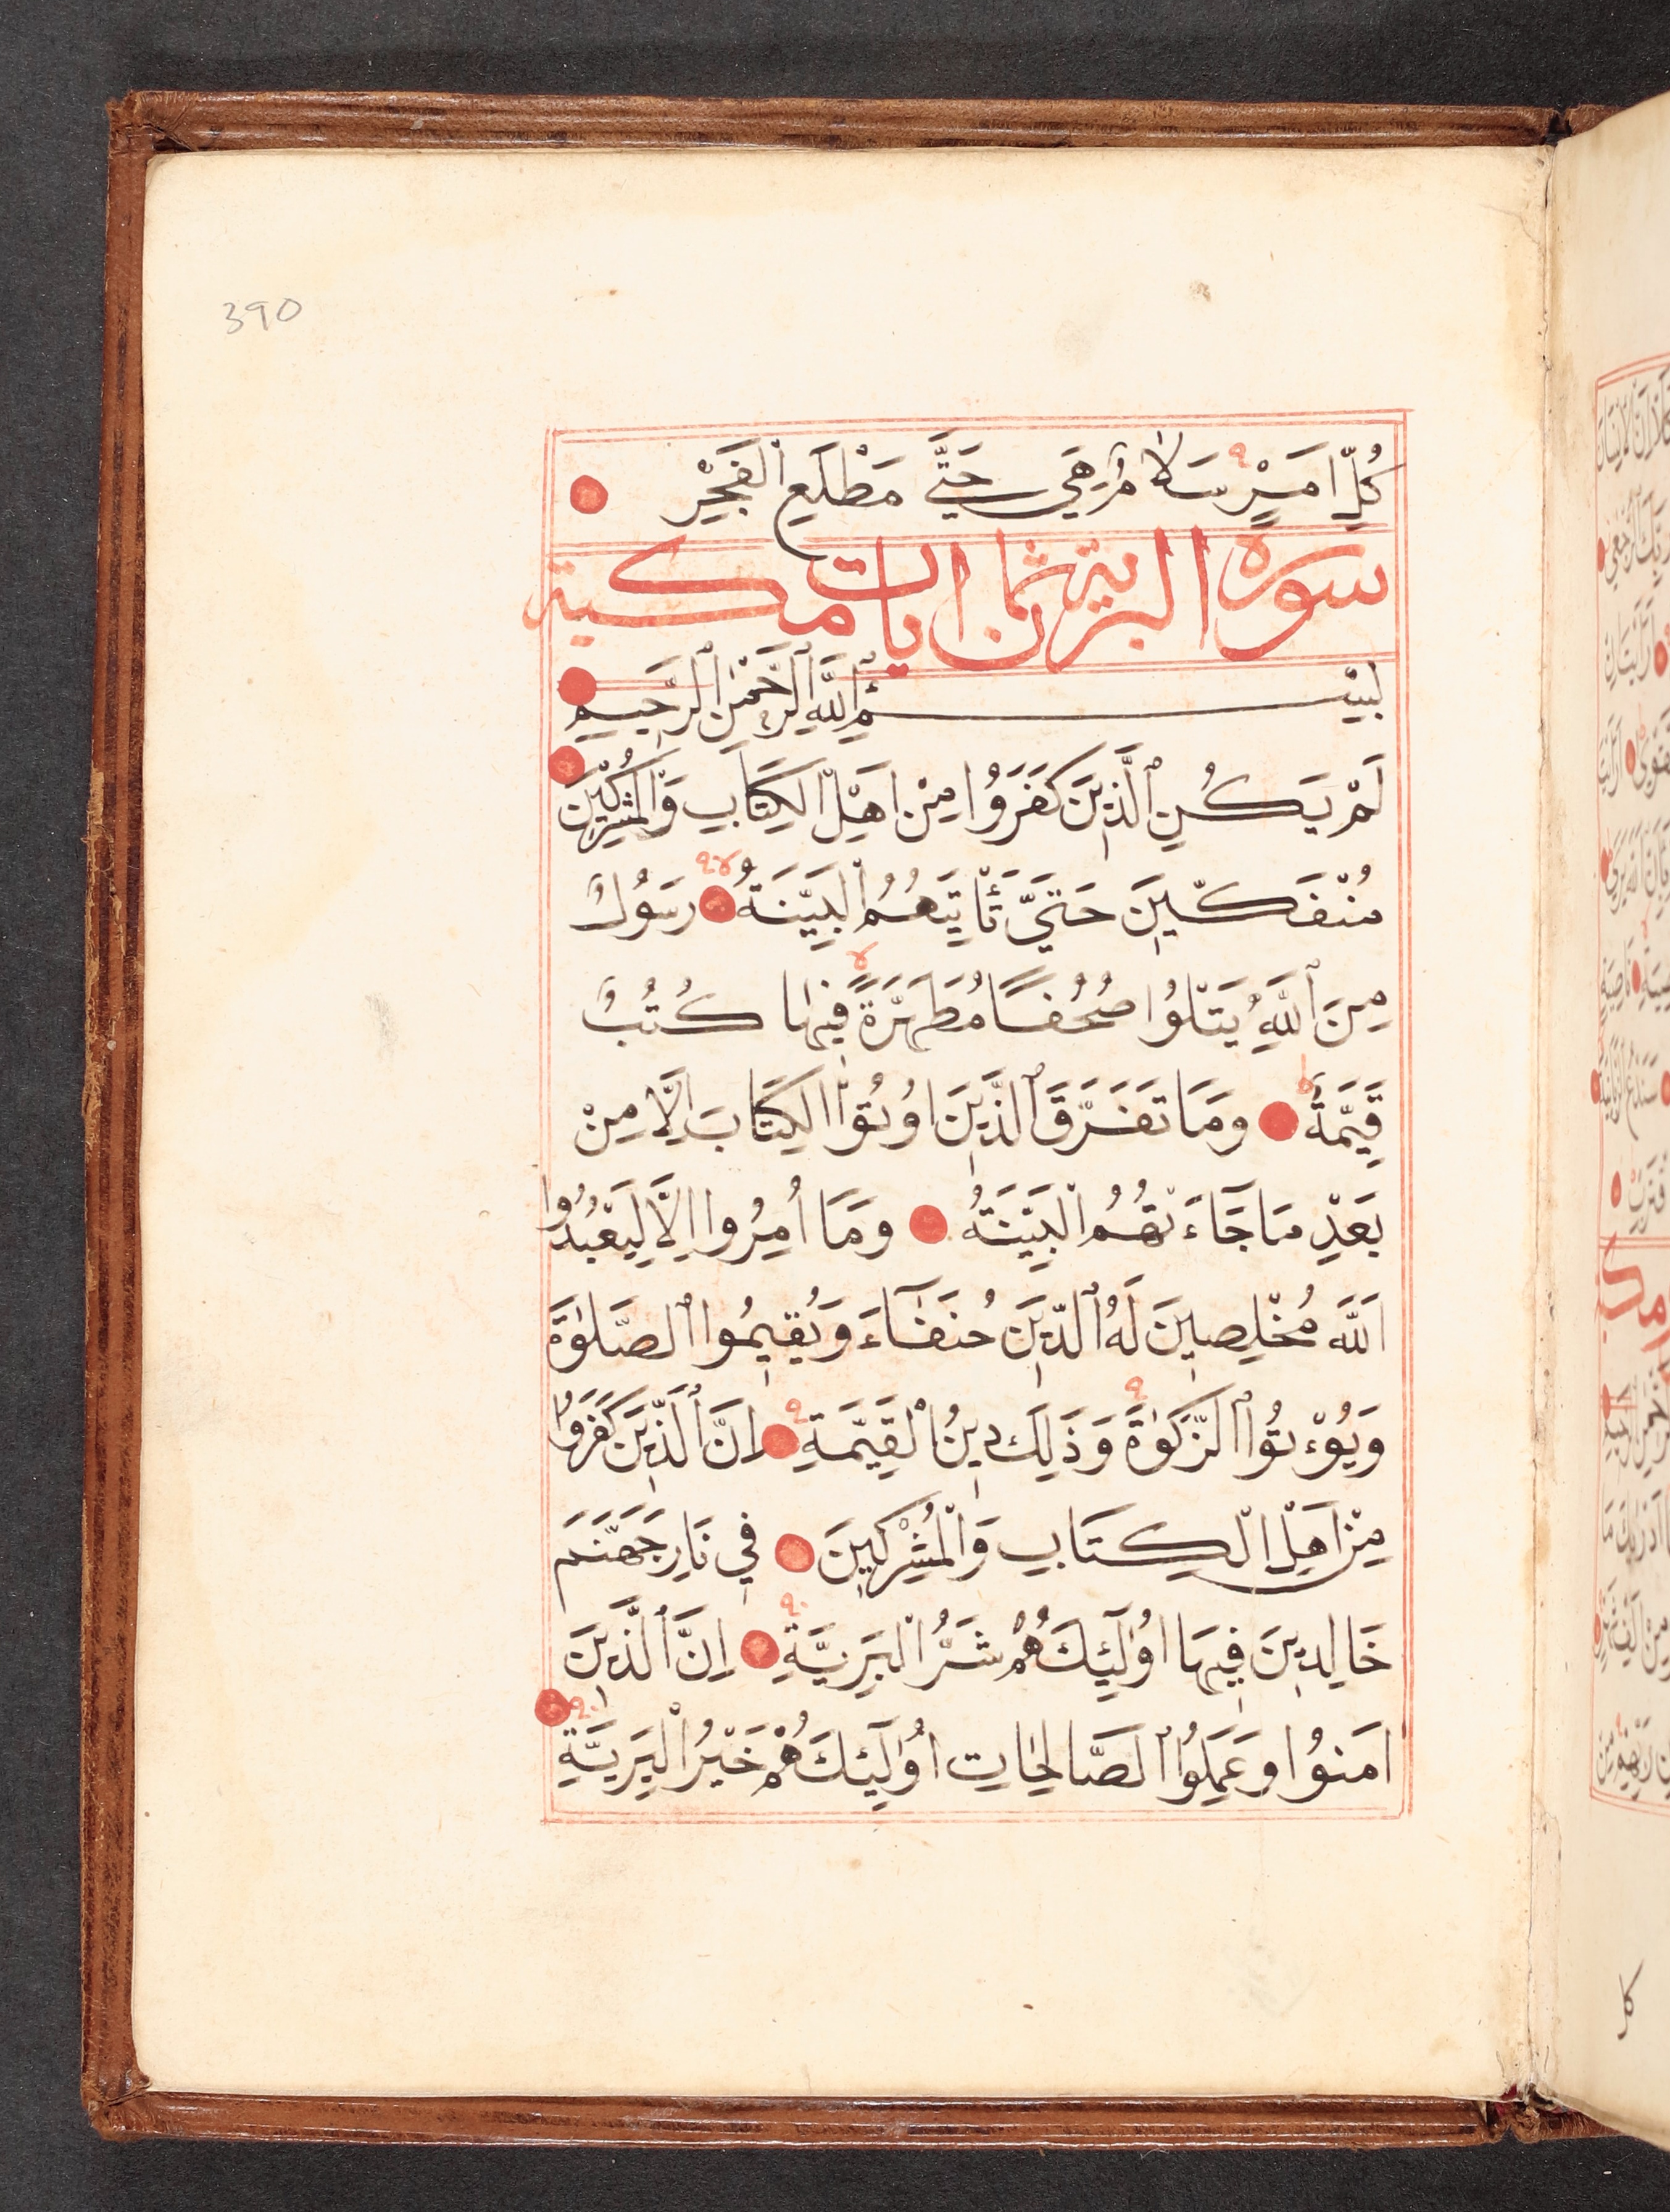 390
كُلِّ اَمْرٍ سَلَامٌ هِيَ حَتَّى مَطْلَعِ الْفَجْرِ
سورة البرية ثمان ايات مكية
بِسْمِ اللَّهِ الرَّحْمٰنِ الرَّحِيمِ
لَمْ يَكُنِ الَّذِينَ كَفَرُوا مِنْ اَهْلِ الْكِتَابِ وَالْمُشْرِكِينَ
مُنْفَكِّينَ حَتَّى تَأْتِيَهُمُ الْبَيِّنَةُ رَسُولٌ
مِنَ اللَّهِ يَتْلُوا صُحُفًا مُطَهَّرَةً فِيهَا كُتُبٌ
قَيِّمَةٌ وَمَا تَفَرَّقَ الَّذِينَ اُوتُوا الْكِتَابَ اِلَّا مِنْ
بَعْدِ مَا جَاءَتْهُمُ الْبَيِّنَةُ وَمَا اُمِرُوا اِلَّا لِيَعْبُدُوا
اللَّهَ مُخْلِصِينَ لَهُ الدِّينَ حُنَفَآءَ وَيُقِيمُوا الصَّلٰوةَ
وَيُؤْتُوا الزَّكٰوةَ وَذَلِكَ دِينُ الْقَيِّمَةِ اِنَّ الَّذِينَ كَفَرُوا
مِنْ اَهْلِ الْكِتَابِ وَالْمُشْرِكِينَ فِي نَارِ جَهَنَّمَ
خَالِدِينَ فِيهَا اُولٰئِكَ هُمْ شَرُّ الْبَرِيَّةِ اِنَّ الَّذِينَ
اٰمَنُوا وَعَمِلُوا الصَّالِحَاتِ اُولٰئِكَ هُمْ خَيْرُ الْبَرِيَّةِ